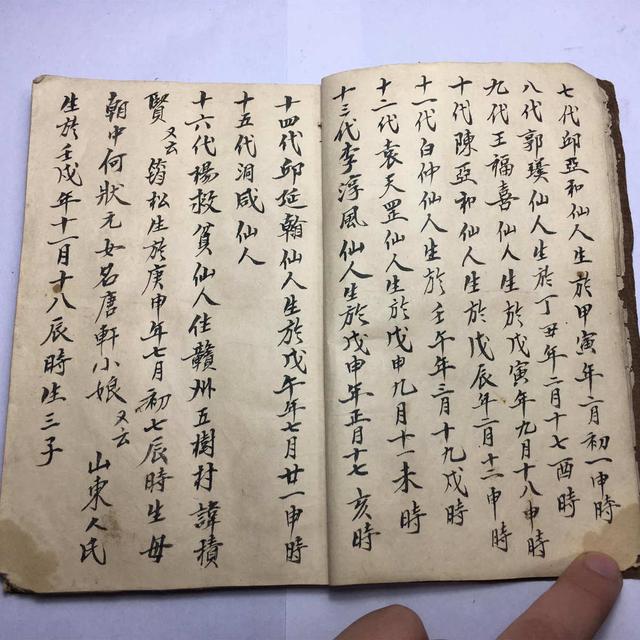 七代邱亞和仙人生於甲寅年二月初一申時
八代郭璞仙人生於丁丑年二月十七酉時
九代王福喜仙人生於戊寅年九月十八申時
十代陳亞和仙人生於戊辰年二月十二申時
十一代白仲仙人生於壬午年三月十九戌時
十二代袁天罡仙人生於戊申九月十一未時
十三代李淳風仙人生於戊申年正月十七亥時
十四代邱延翰仙人生於戊午年七月廿一申時
十五代洞咸仙人
十六代楊救貧仙人住贛州五樹村諱積
賢又云筠松生於庚申年七月初七辰時生母
朝中何狀元女名唐軒小娘又云山東人氏
生於壬戌年十一月十八辰時生三子